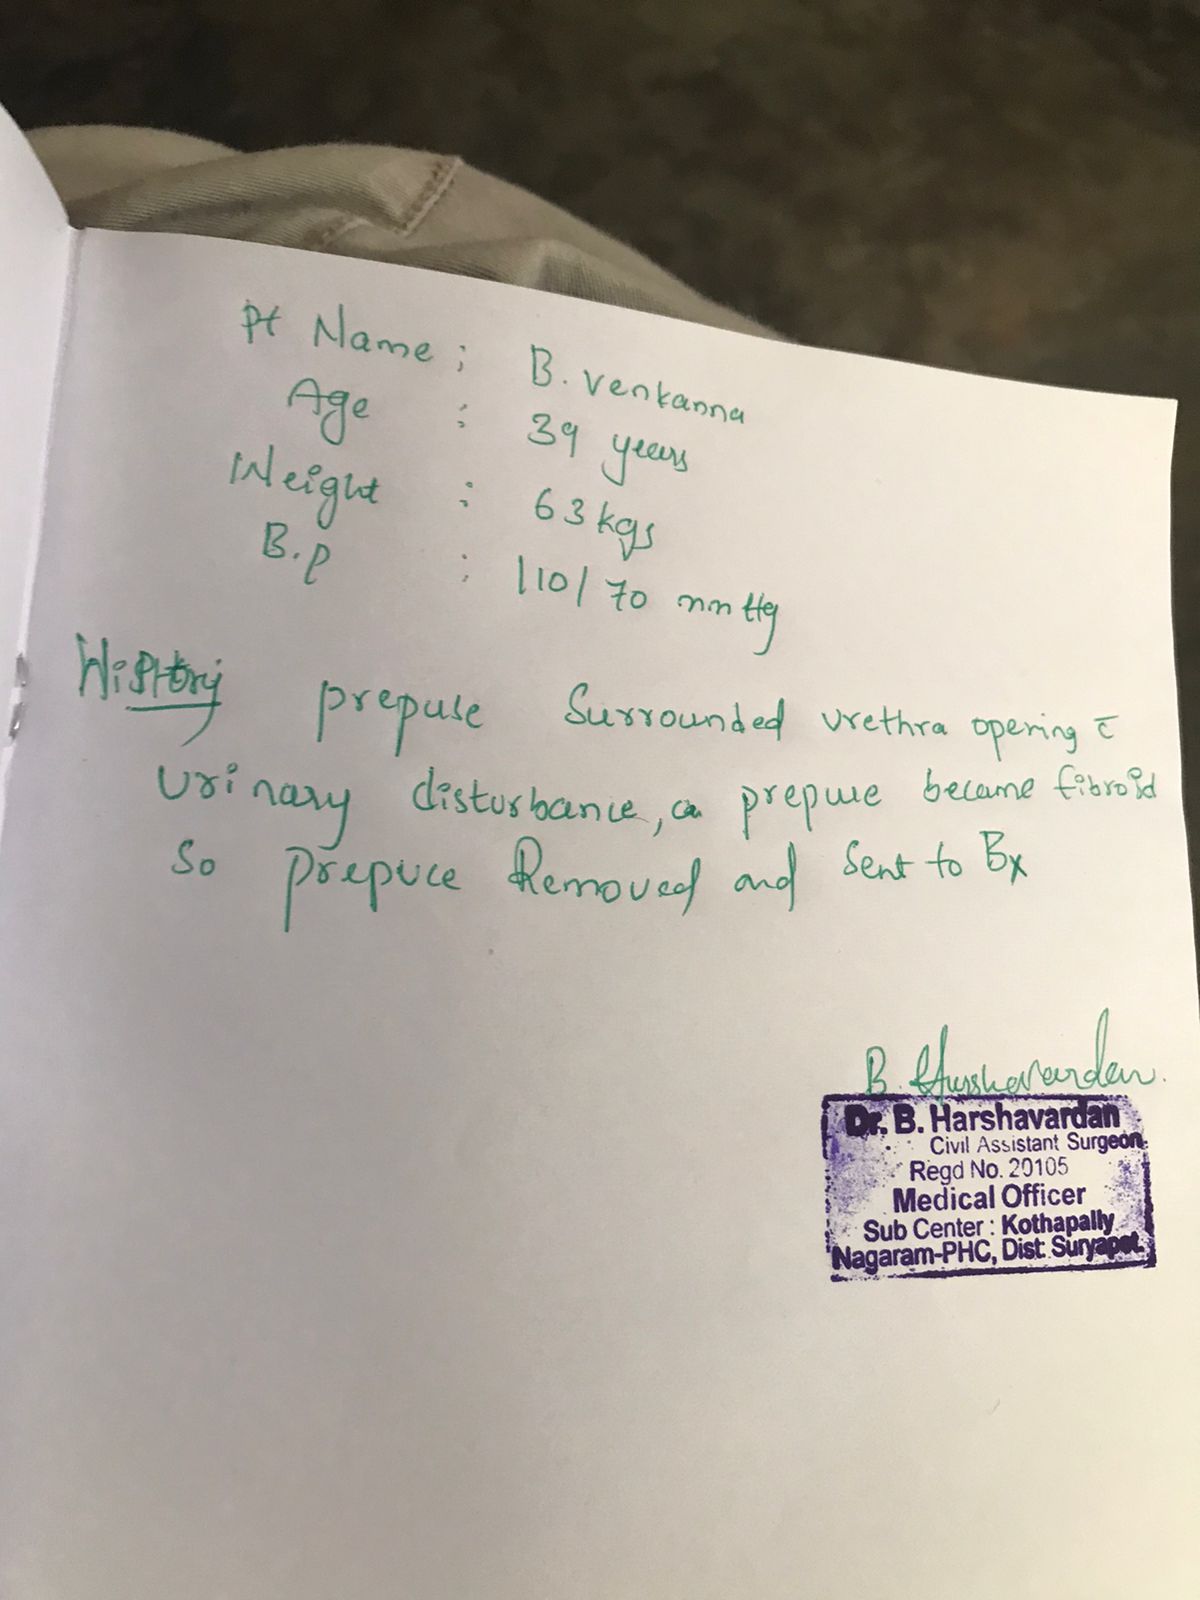 Pt Name ; B. Venkanna
Age : 39 years
Weight : 63 kgs
B.p : 110/70 mmHg
History prepuse Surrounded urethra opening c̄
urinary disturbance, prepuce became fibroid
So prepuce Removed and Sent to Bx
B. Harshavardan.
Dr. B. Harshavardan
Civil Assistant Surgeon
Regd No. 20105
Medical Officer
Sub Center : Kothapally
Nagaram-PHC, Dist: Suryapet.